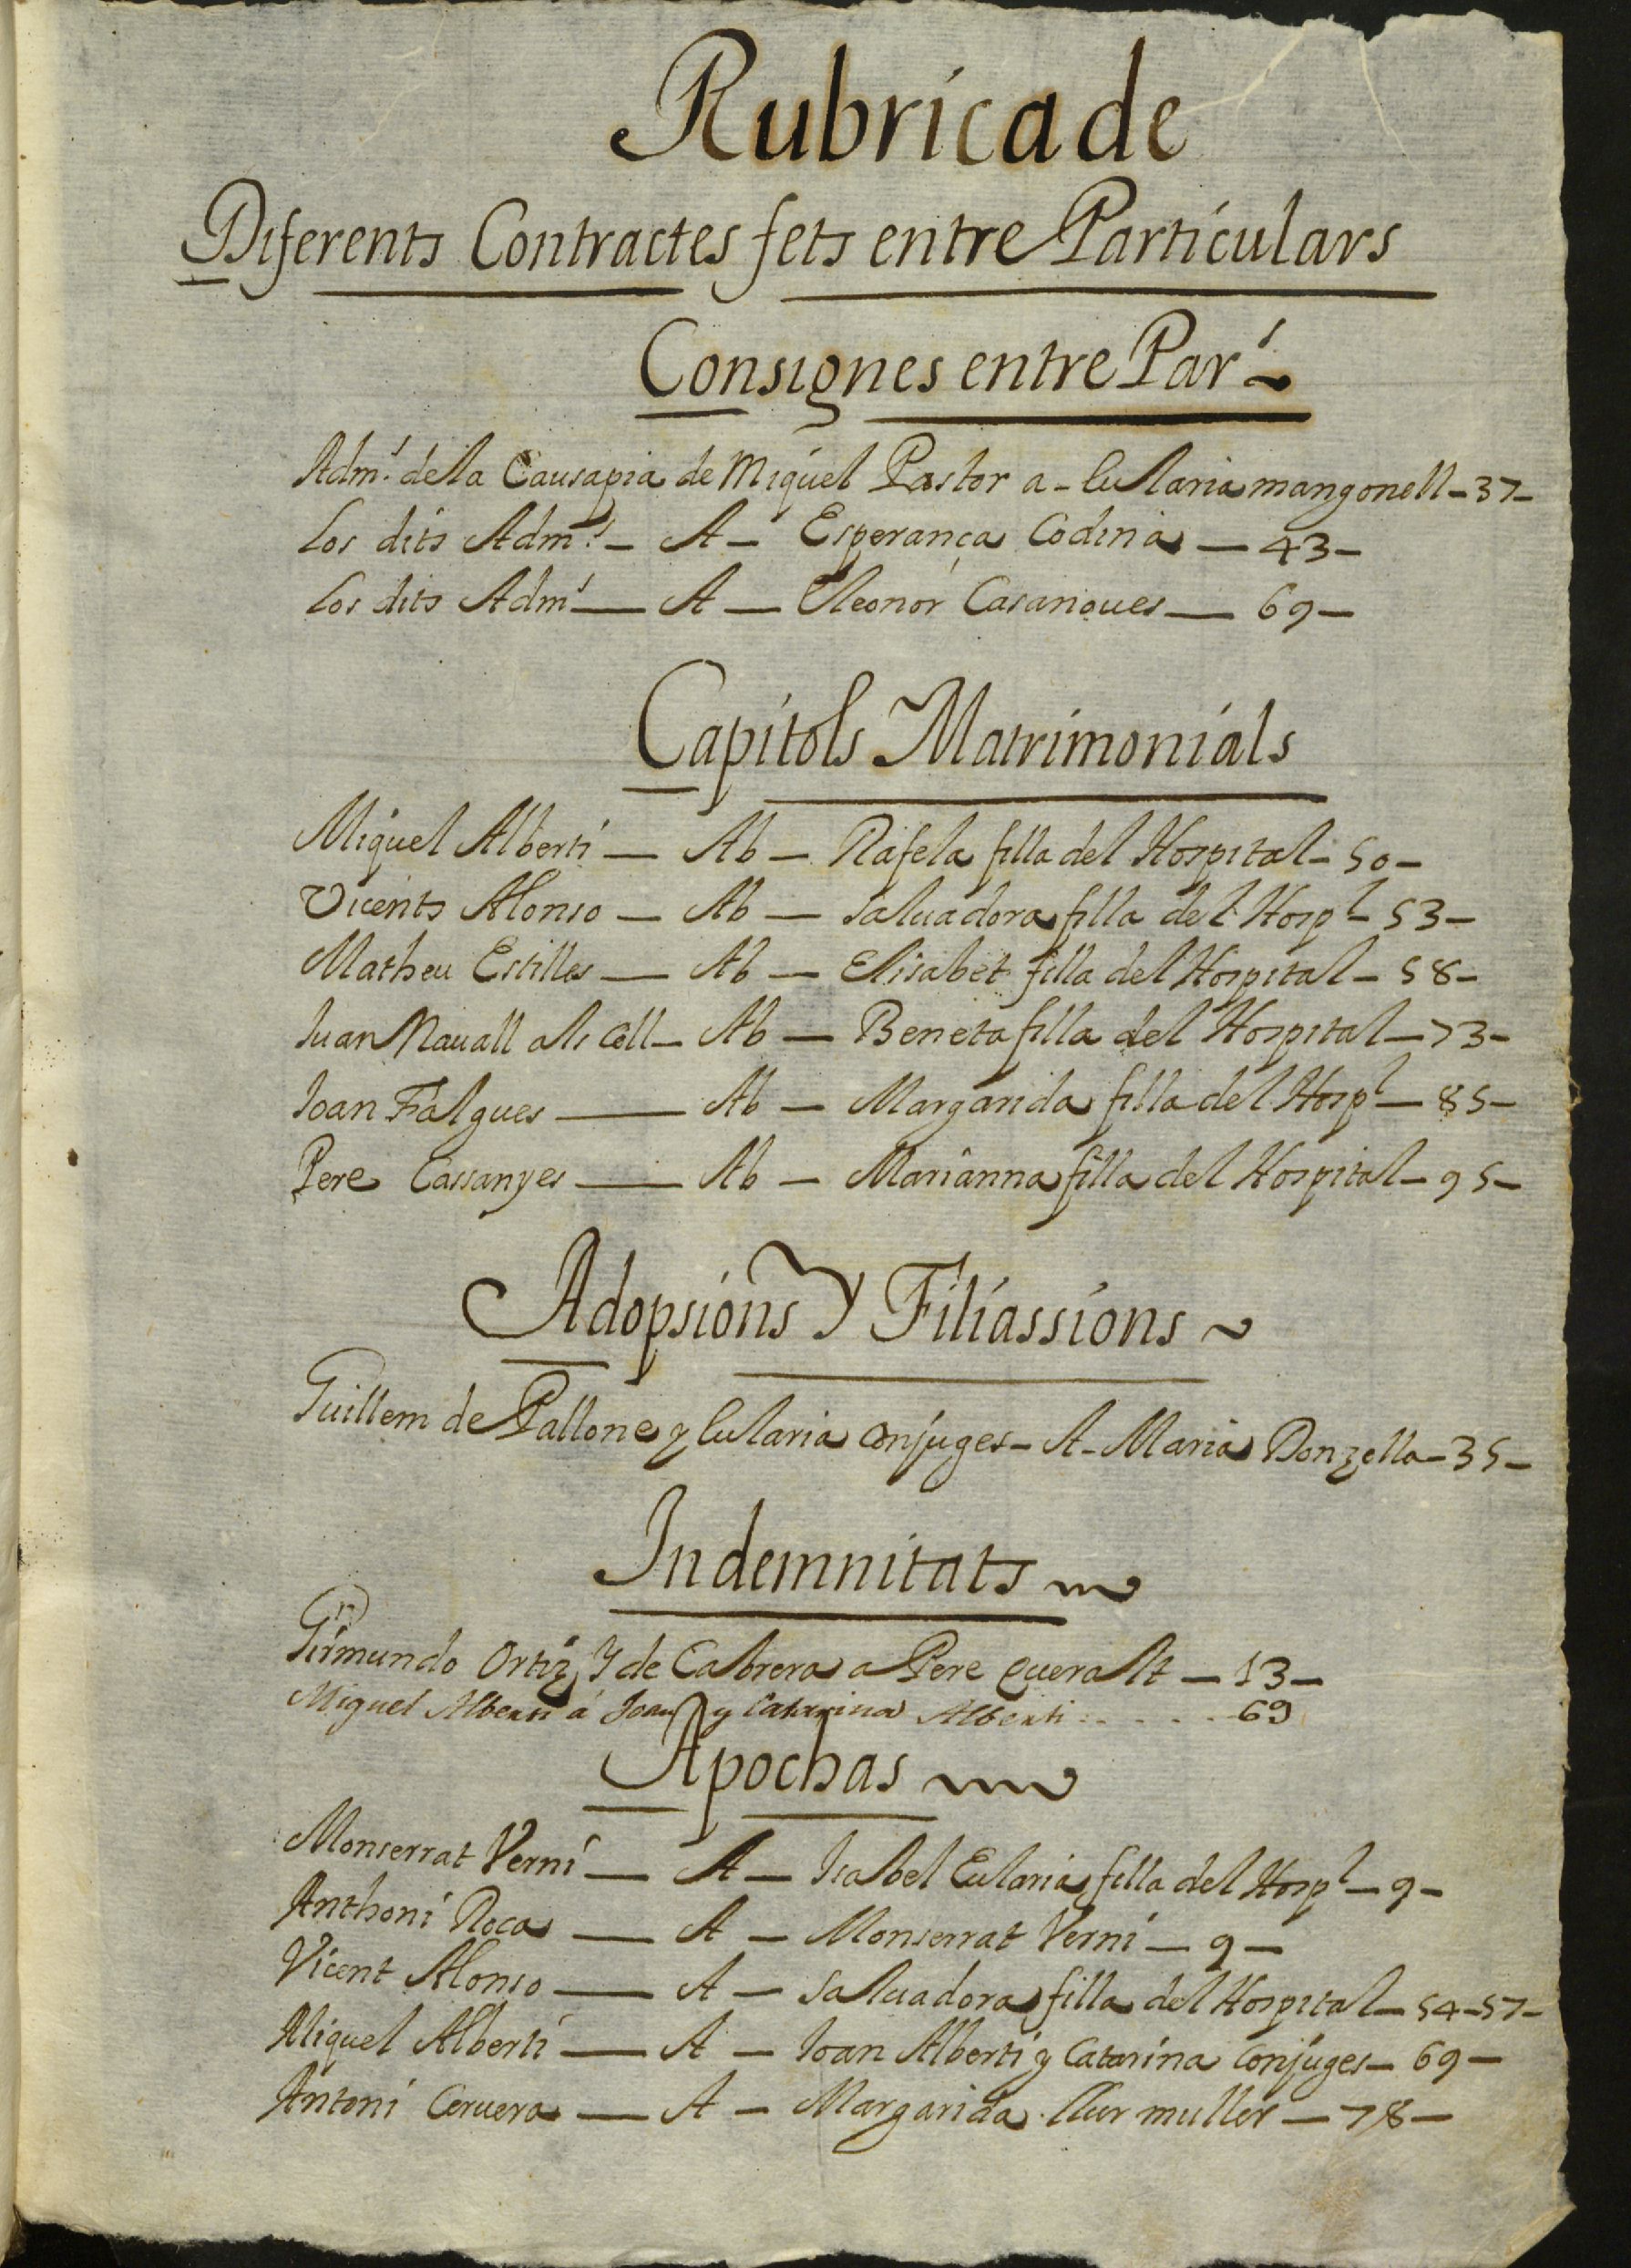 Rubrica de
Diferents Contractes fets entre Particulars
Consignes entre Par.
Adm. de la Causapia de Miquel Pastor a - Eularia mangonell - 37 -
Los dits Adm. - A - Esperança Codina - 43 -
Los dits Adm. - A - Eleonor Casanoues - 69 -
Capitols Matrimonials
Miquel Alberti - Ab - Rafela filla del Hospital - 50 -
Vicents Alonso - Ab - Saluadora filla del Hospl - 53 -
Matheu Estilles - Ab - Elisabet filla del Hospital - 58 -
Juan Nauall als Coll - Ab - Beneta filla del Hospital - 73 -
Joan Falgues - Ab - Margarida filla del Hospl - 85 -
Pere Cassanyes - Ab - Marianna filla del Hospital - 95 -
Adopsions Y Filiassions
Guillem de Pallone y Eularia Conjuges - A - Maria Donzella - 35 -
Indemnitats
Germundo Ortiz, Y de Cabrera a Pere Queralt - 13 -
Miquel Alberti á Joan y Catarina Alberti . . . . . 69
Apochas
Monserrat Verni - A - Isabel Eularia filla del Hospl - 9 -
Anthoni Roca - A - Monserrat Verni - 9 -
Vicent Alonso - A - Saluadora filla del Hospital - 54 - 57 -
Miquel Alberti - A - Joan Alberti y Catarina Conjuges - 69 -
Antoni Ceruera - A - Margarida llur muller - 78 -